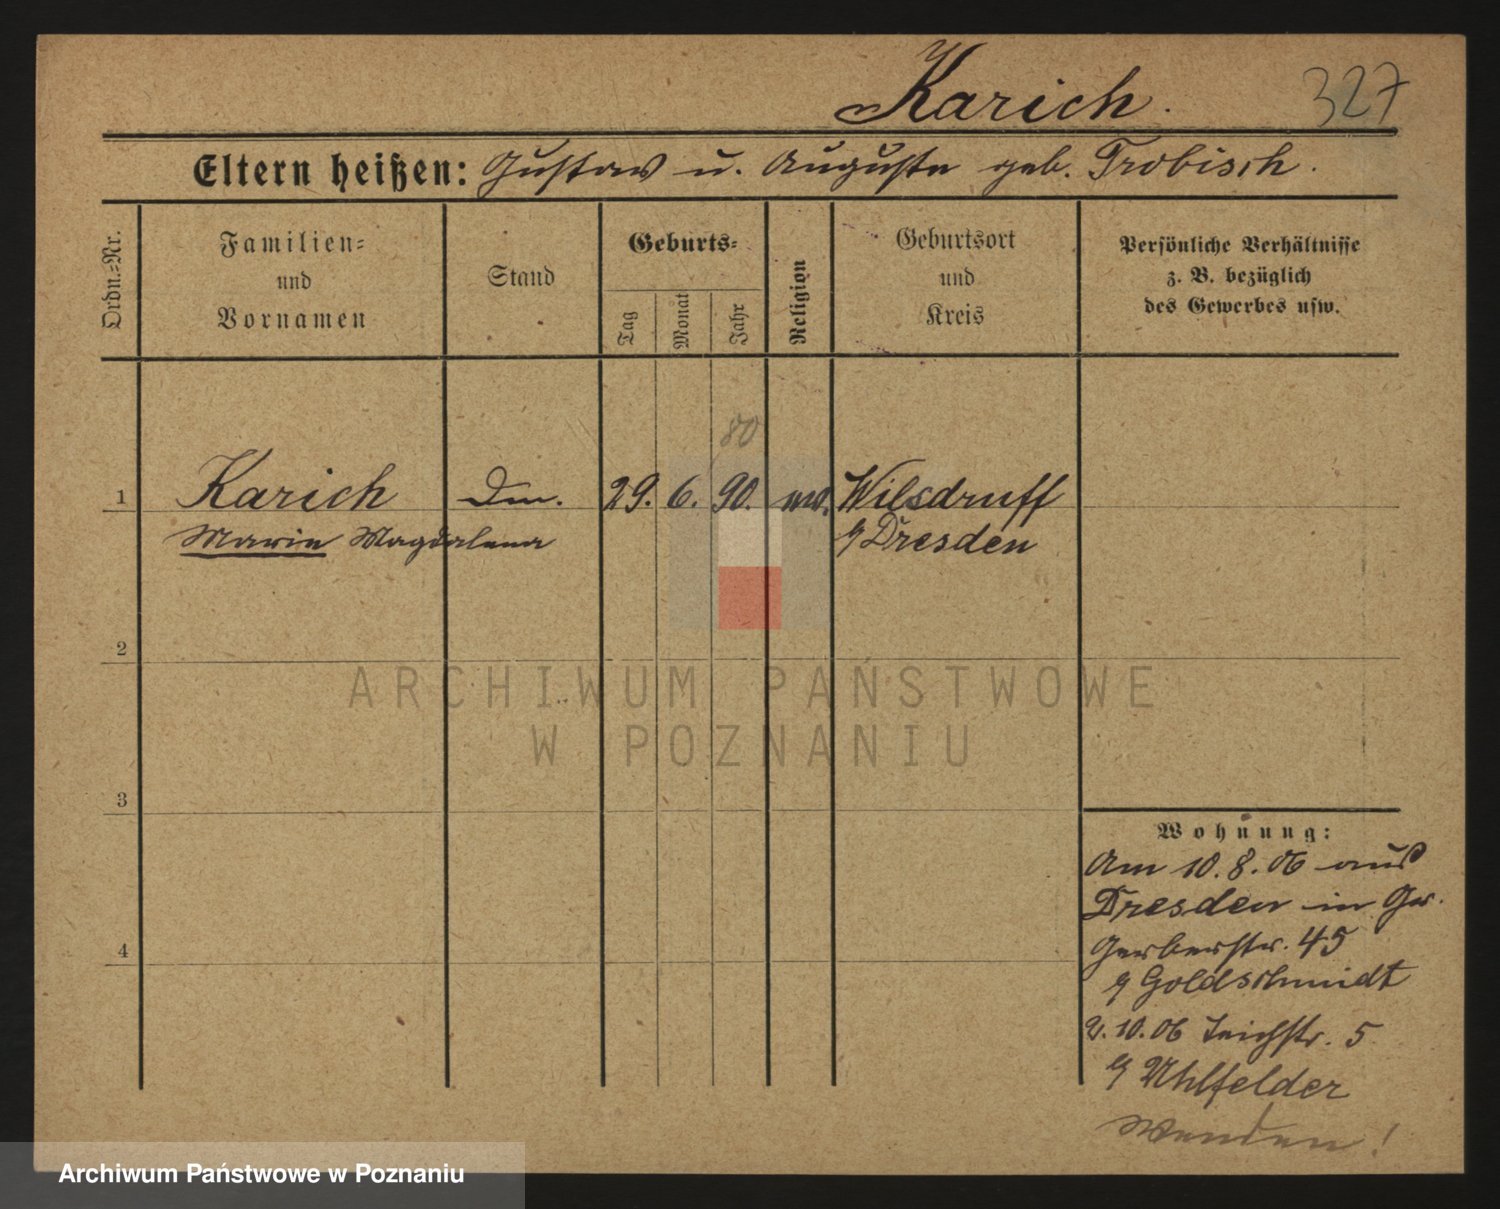 Karich.
327
Eltern heißen: Gustav u. Auguste geb. Trobisch.
Ordn.=Nr.
Familien=
und
Vornamen
Stand
Geburts=
Tag
Monat
Jahr
Religion
Geburtsort
und
Kreis
Persönliche Verhältnisse
z. B. bezüglich
des Gewerbes usw.
80
1
Karich
29. 6. 90.
Wilsdruff
Marie Magdalena
Dresden
2
3
4
Wohnung:
Am 10.8.06 aus
Dresden in
Gerberstr. 45
Goldschmidt
2.10.06 Teichstr. 5
Uhlfelder
Wenden!
ARCHIWUM PAŃSTWOWE
W POZNANIU
Archiwum Państwowe w Poznaniu